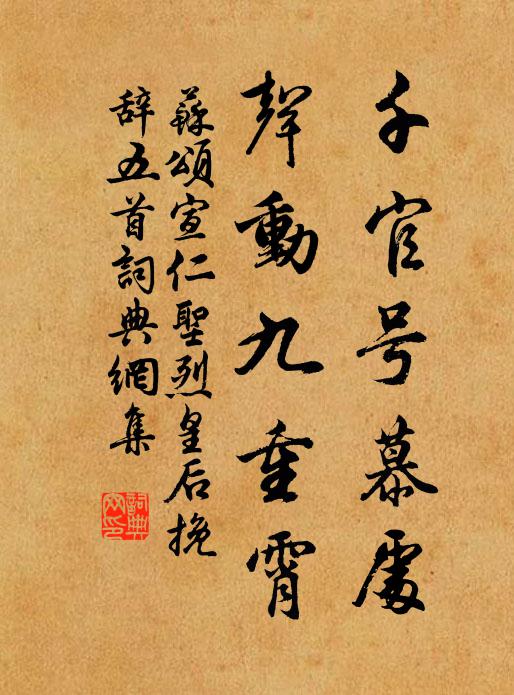 千官号慕處
聲動九重霄
蘇頌宣仁聖烈皇后挽
辭五首詞典網集
詞典
网印